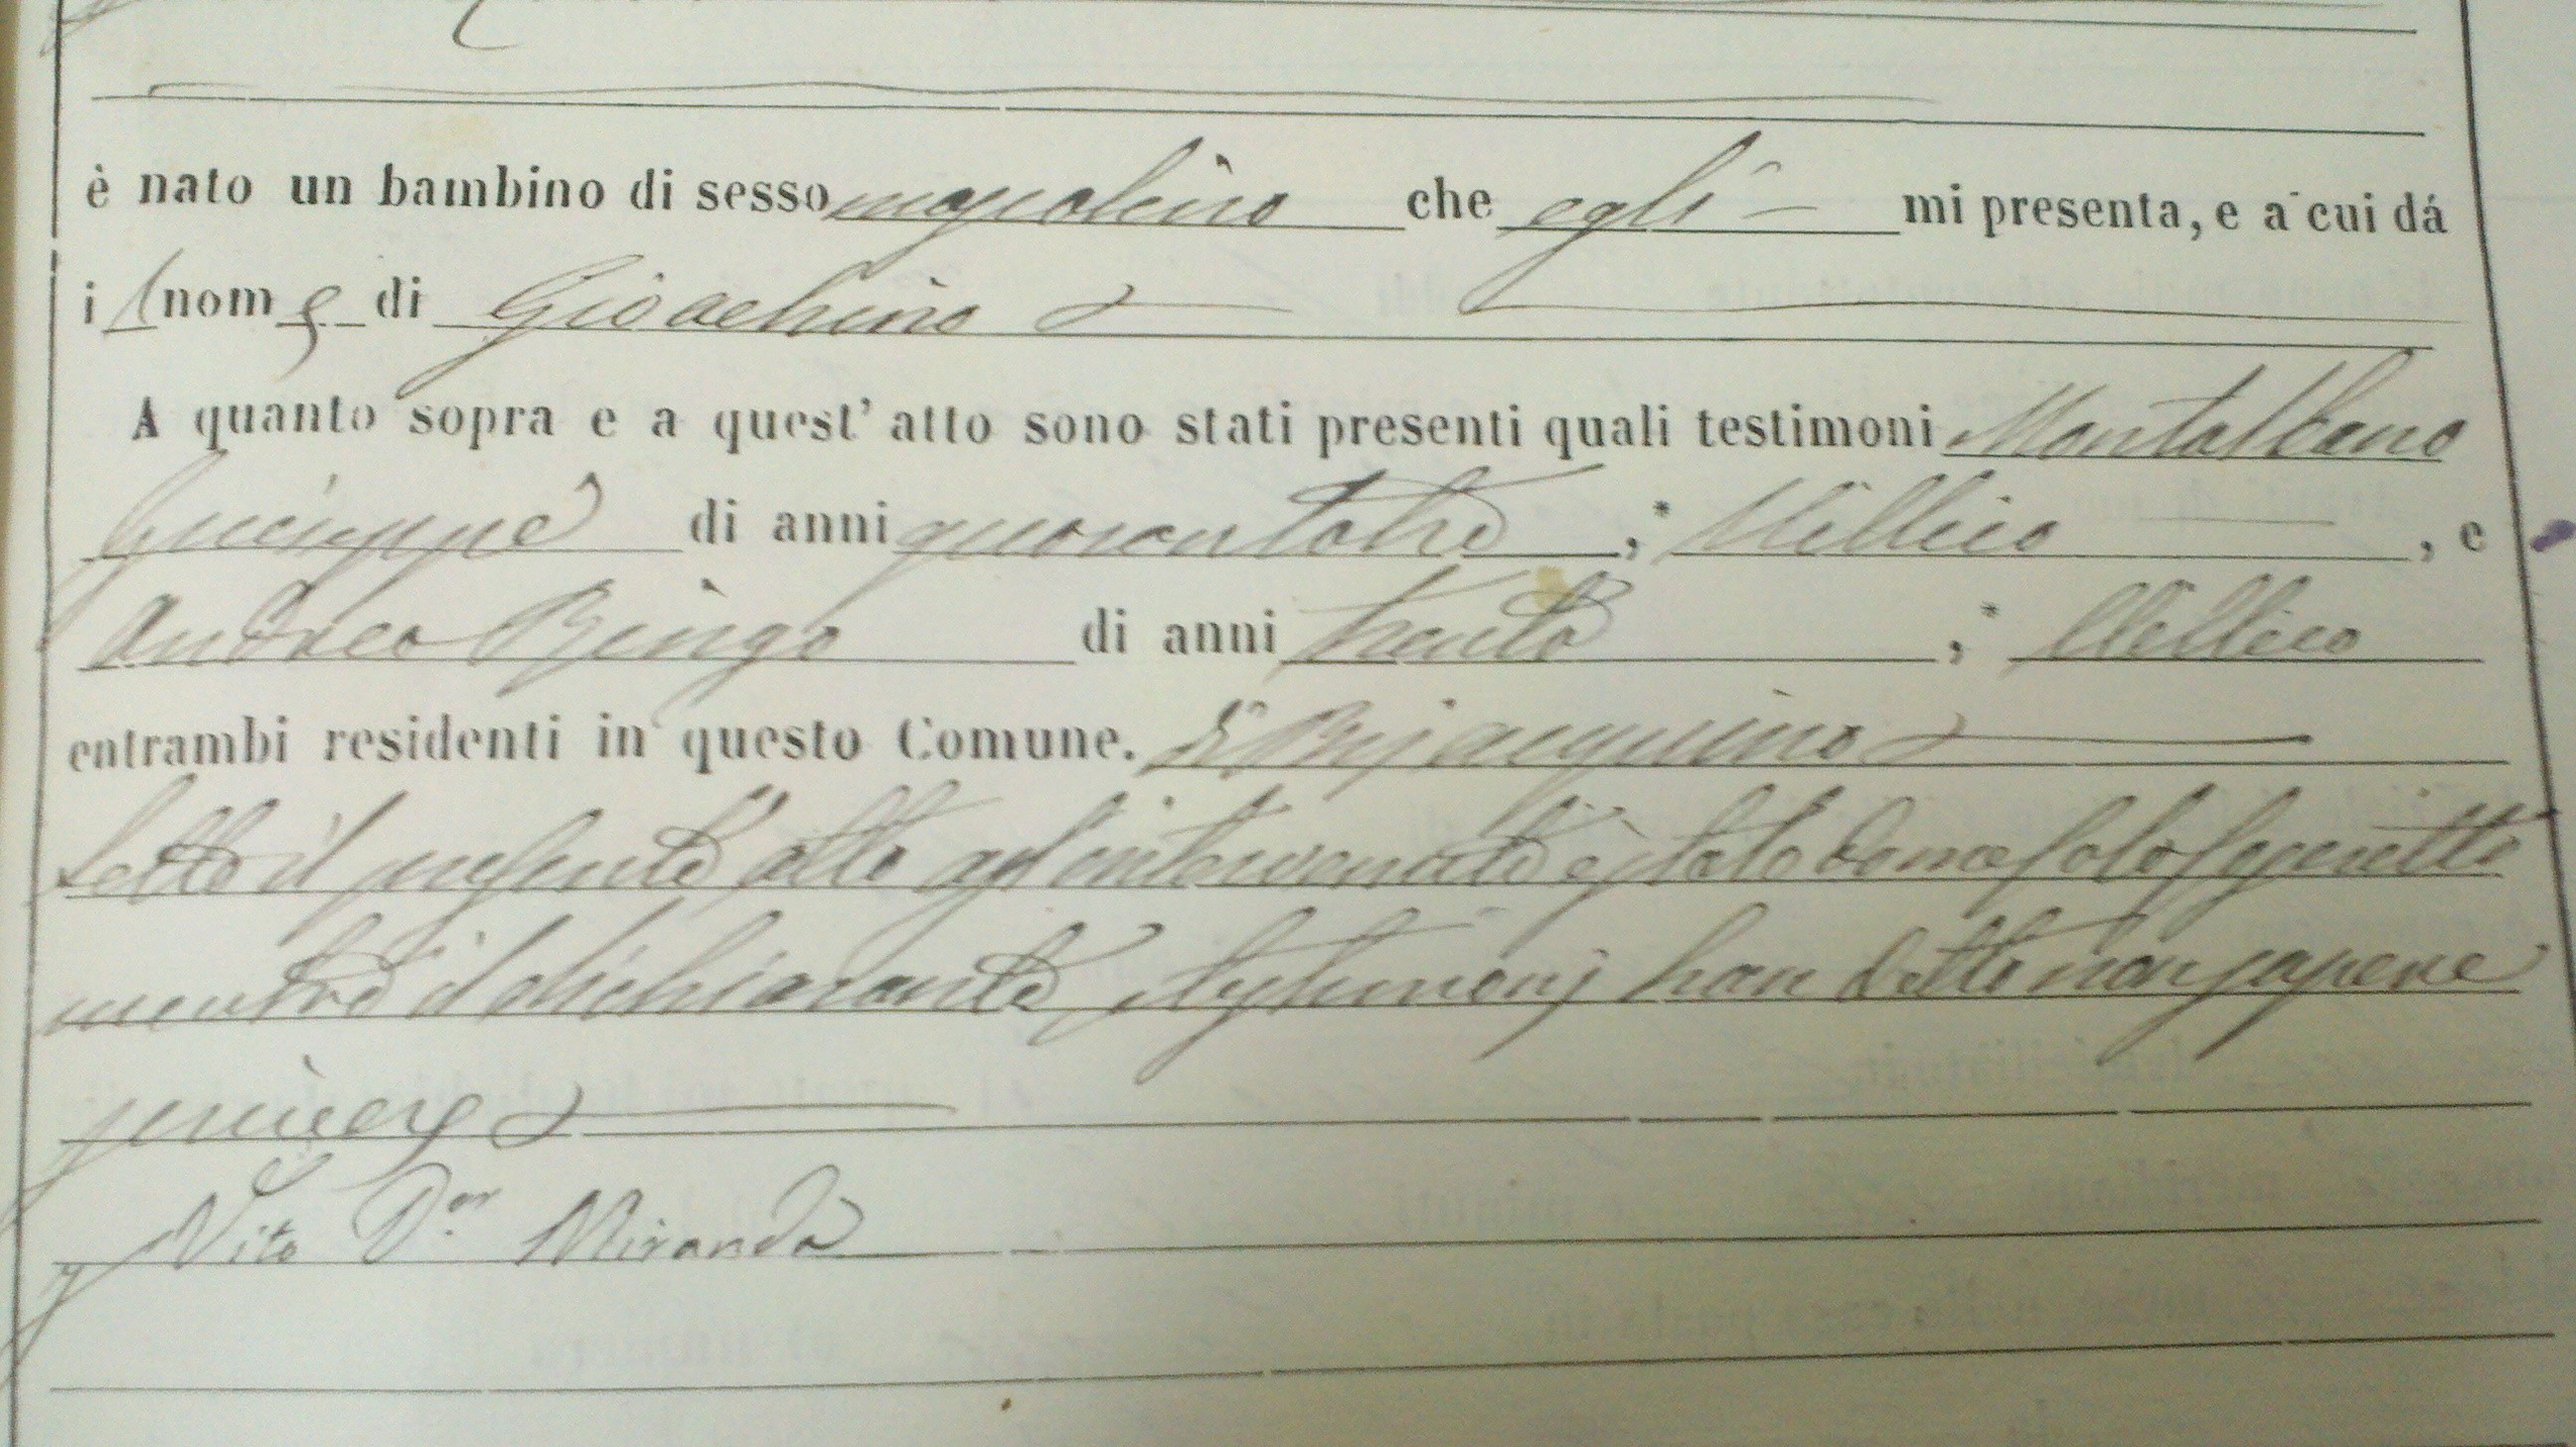 è nato un bambino di sesso mascolino che egli mi presenta, e a cui dá
il nome di Gioachino
A quanto sopra e a quest' atto sono stati presenti quali testimoni Montalbano
Giuseppe di anni quarantatre, Villico, e
Andrea Bingo di anni trenta, Villico
entrambi residenti in questo Comune. di Bisacquino
Letto il presente atto agl'intervenuti è stato da me solo sottoscritto
mentre il dichiarante e testimonj han detto non sapere
scrivere
Vito Dor Miranda